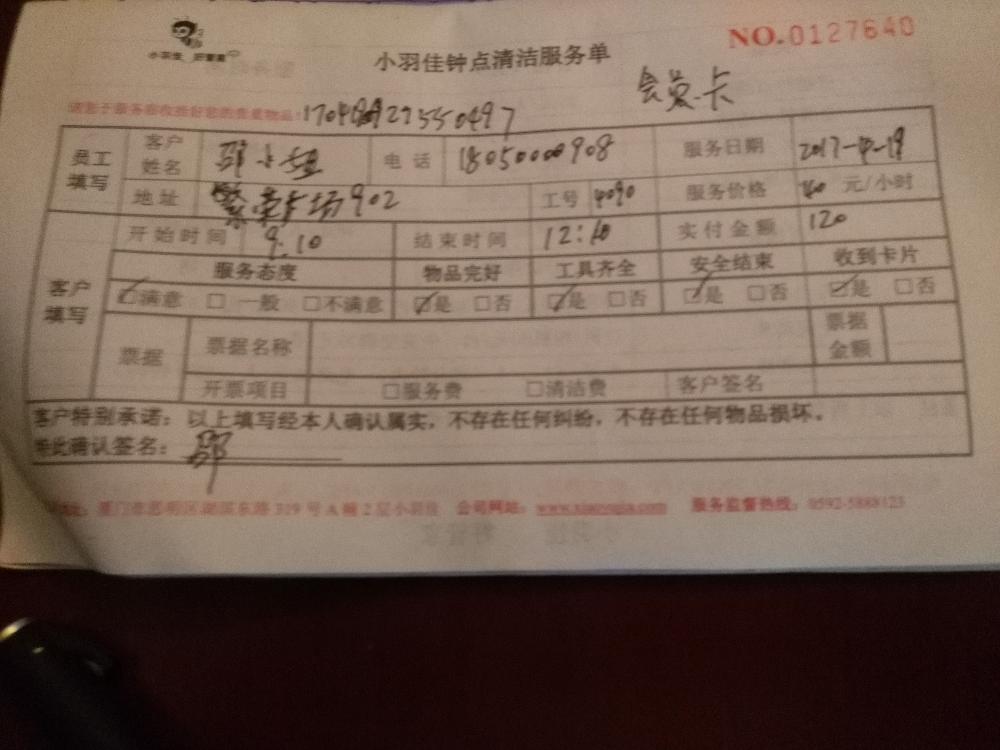 小羽佳 好管家
小羽佳钟点清洁服务单
NO.0127640
会员卡
请您于服务前收拾好您的贵重物品:
员工填写 客户姓名 邵小姐 电话 服务日期
地址 繁荣广场902 工号 4090 服务价格 元/小时
客户填写 开始时间 9:10 结束时间 12:10 实付金额 120
服务态度 物品完好 工具齐全 安全结束 收到卡片
☑满意 □一般 □不满意 ☑是 □否 ☑是 □否 ☑是 □否 ☑是 □否
票据 票据名称 票据金额
开票项目 □服务费 □清洁费 客户签名
客户特别承诺：以上填写经本人确认属实，不存在任何纠纷，不存在任何物品损坏。
特此确认签名： 邵
地址：厦门市思明区湖滨东路319号A幢2层小羽佳 公司网站： 服务监督热线：0592-5888123